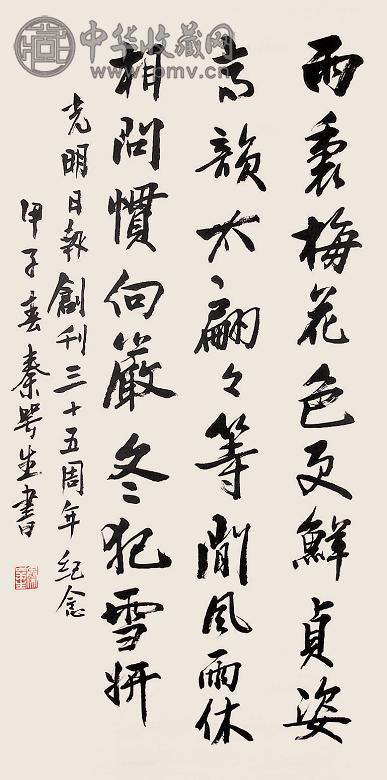 中华收藏网
www.pmv.cn
雨梅花色更鮮貞姿
高韻太翩々等閒風雨休
相問慣向嚴冬犯雪妍
光明日報創刊三十五周年紀念
甲子春秦咢生書